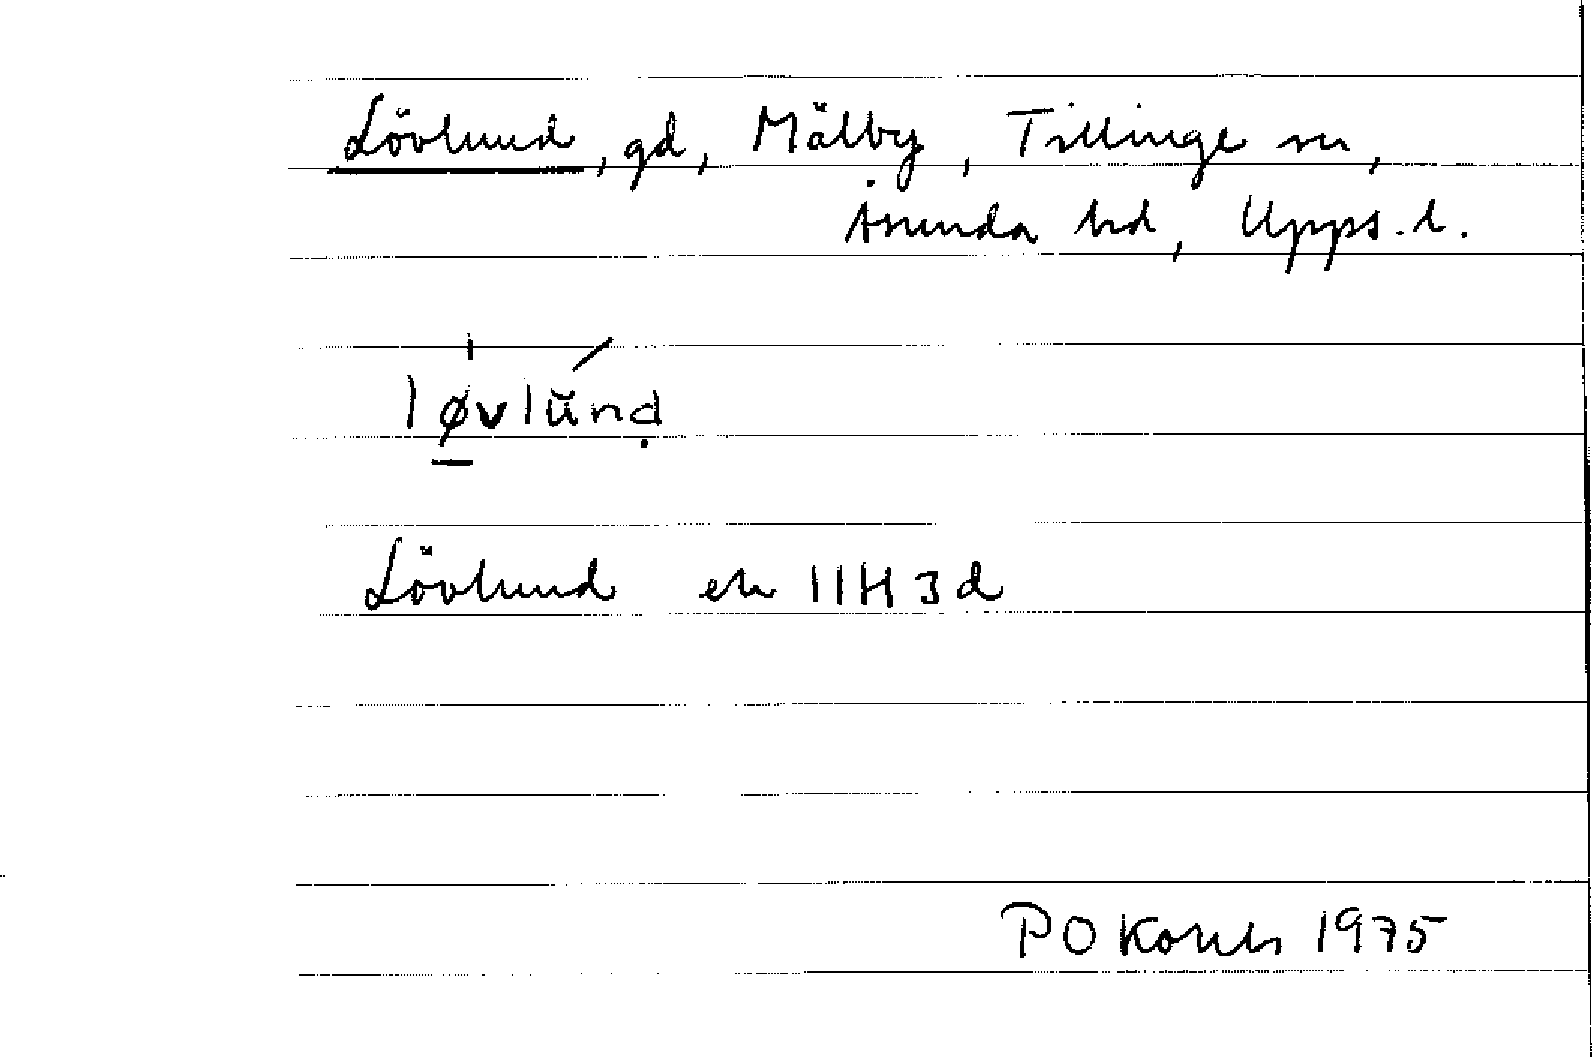 Lövlund, gd, Mälby, Tillinge sn,
Åsunda hd, Upps. l.
løvlund
Lövlund ek 11H 3d
P O 1975